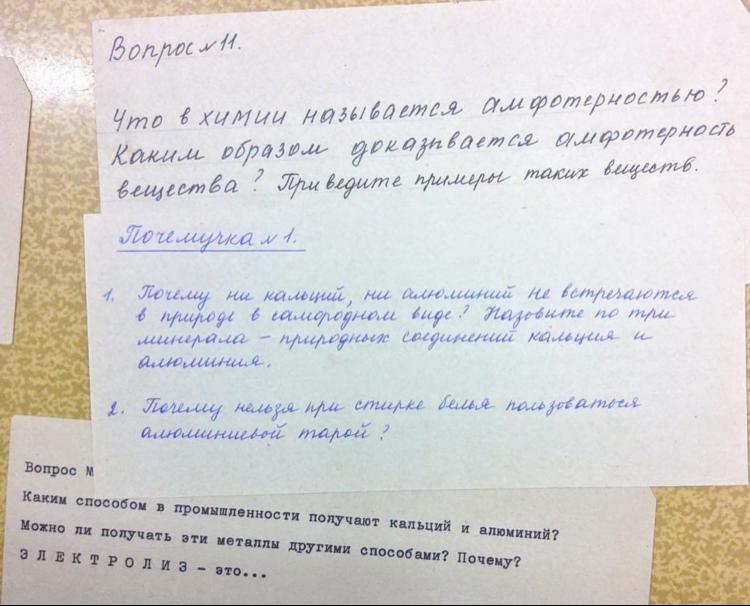 Вопрос №11.
Что в химии называется амфотерностью?
Каким образом доказывается амфотерность
вещества? Приведите примеры таких веществ.
Почемучка №1.
1. Почему ни кальций, ни алюминий не встречаются
в природе в самородном виде? Назовите по три
минерала – природных соединений кальция и
алюминия.
2. Почему нельзя при стирке белья пользоваться
алюминиевой тарой?
Вопрос №
Каким способом в промышленности получают кальций и алюминий?
Можно ли получать эти металлы другими способами? Почему?
Э Л Е К Т Р О Л И З – это...